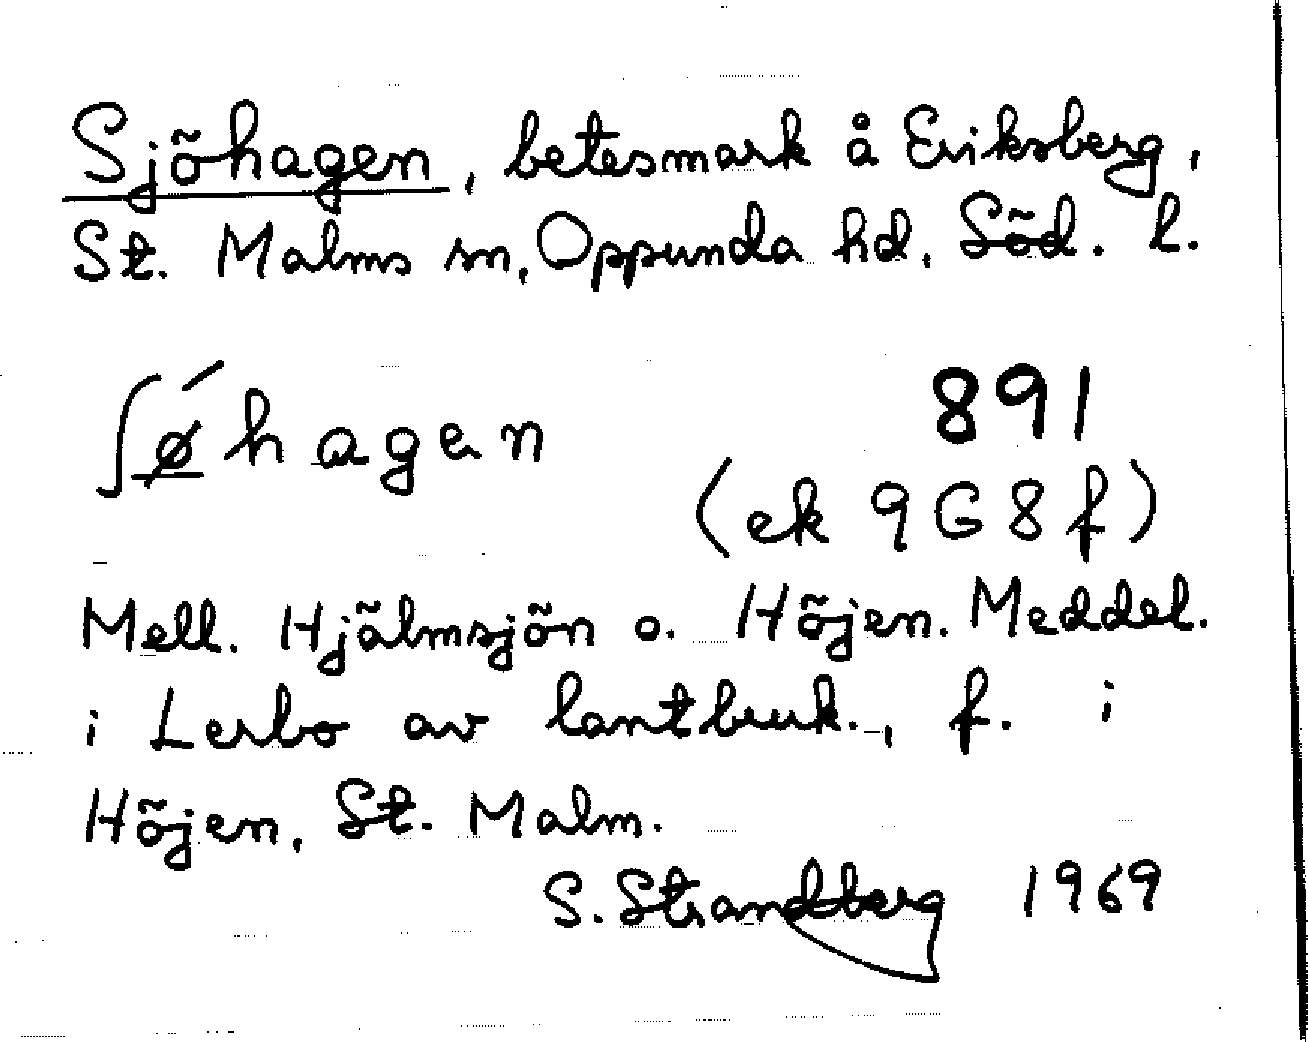 Sjöhagen, betesmark å Eriksberg,
St. Malms sn, Oppunda hd, Söd. l.
ʃǿ̱hagen
891
(ek 9G8f)
Mell. Hjälmsjön o. Höjen. Meddel.
i Lerbo av lantbruk., f. i
Höjen, St. Malm.
S. Strandberg 1969